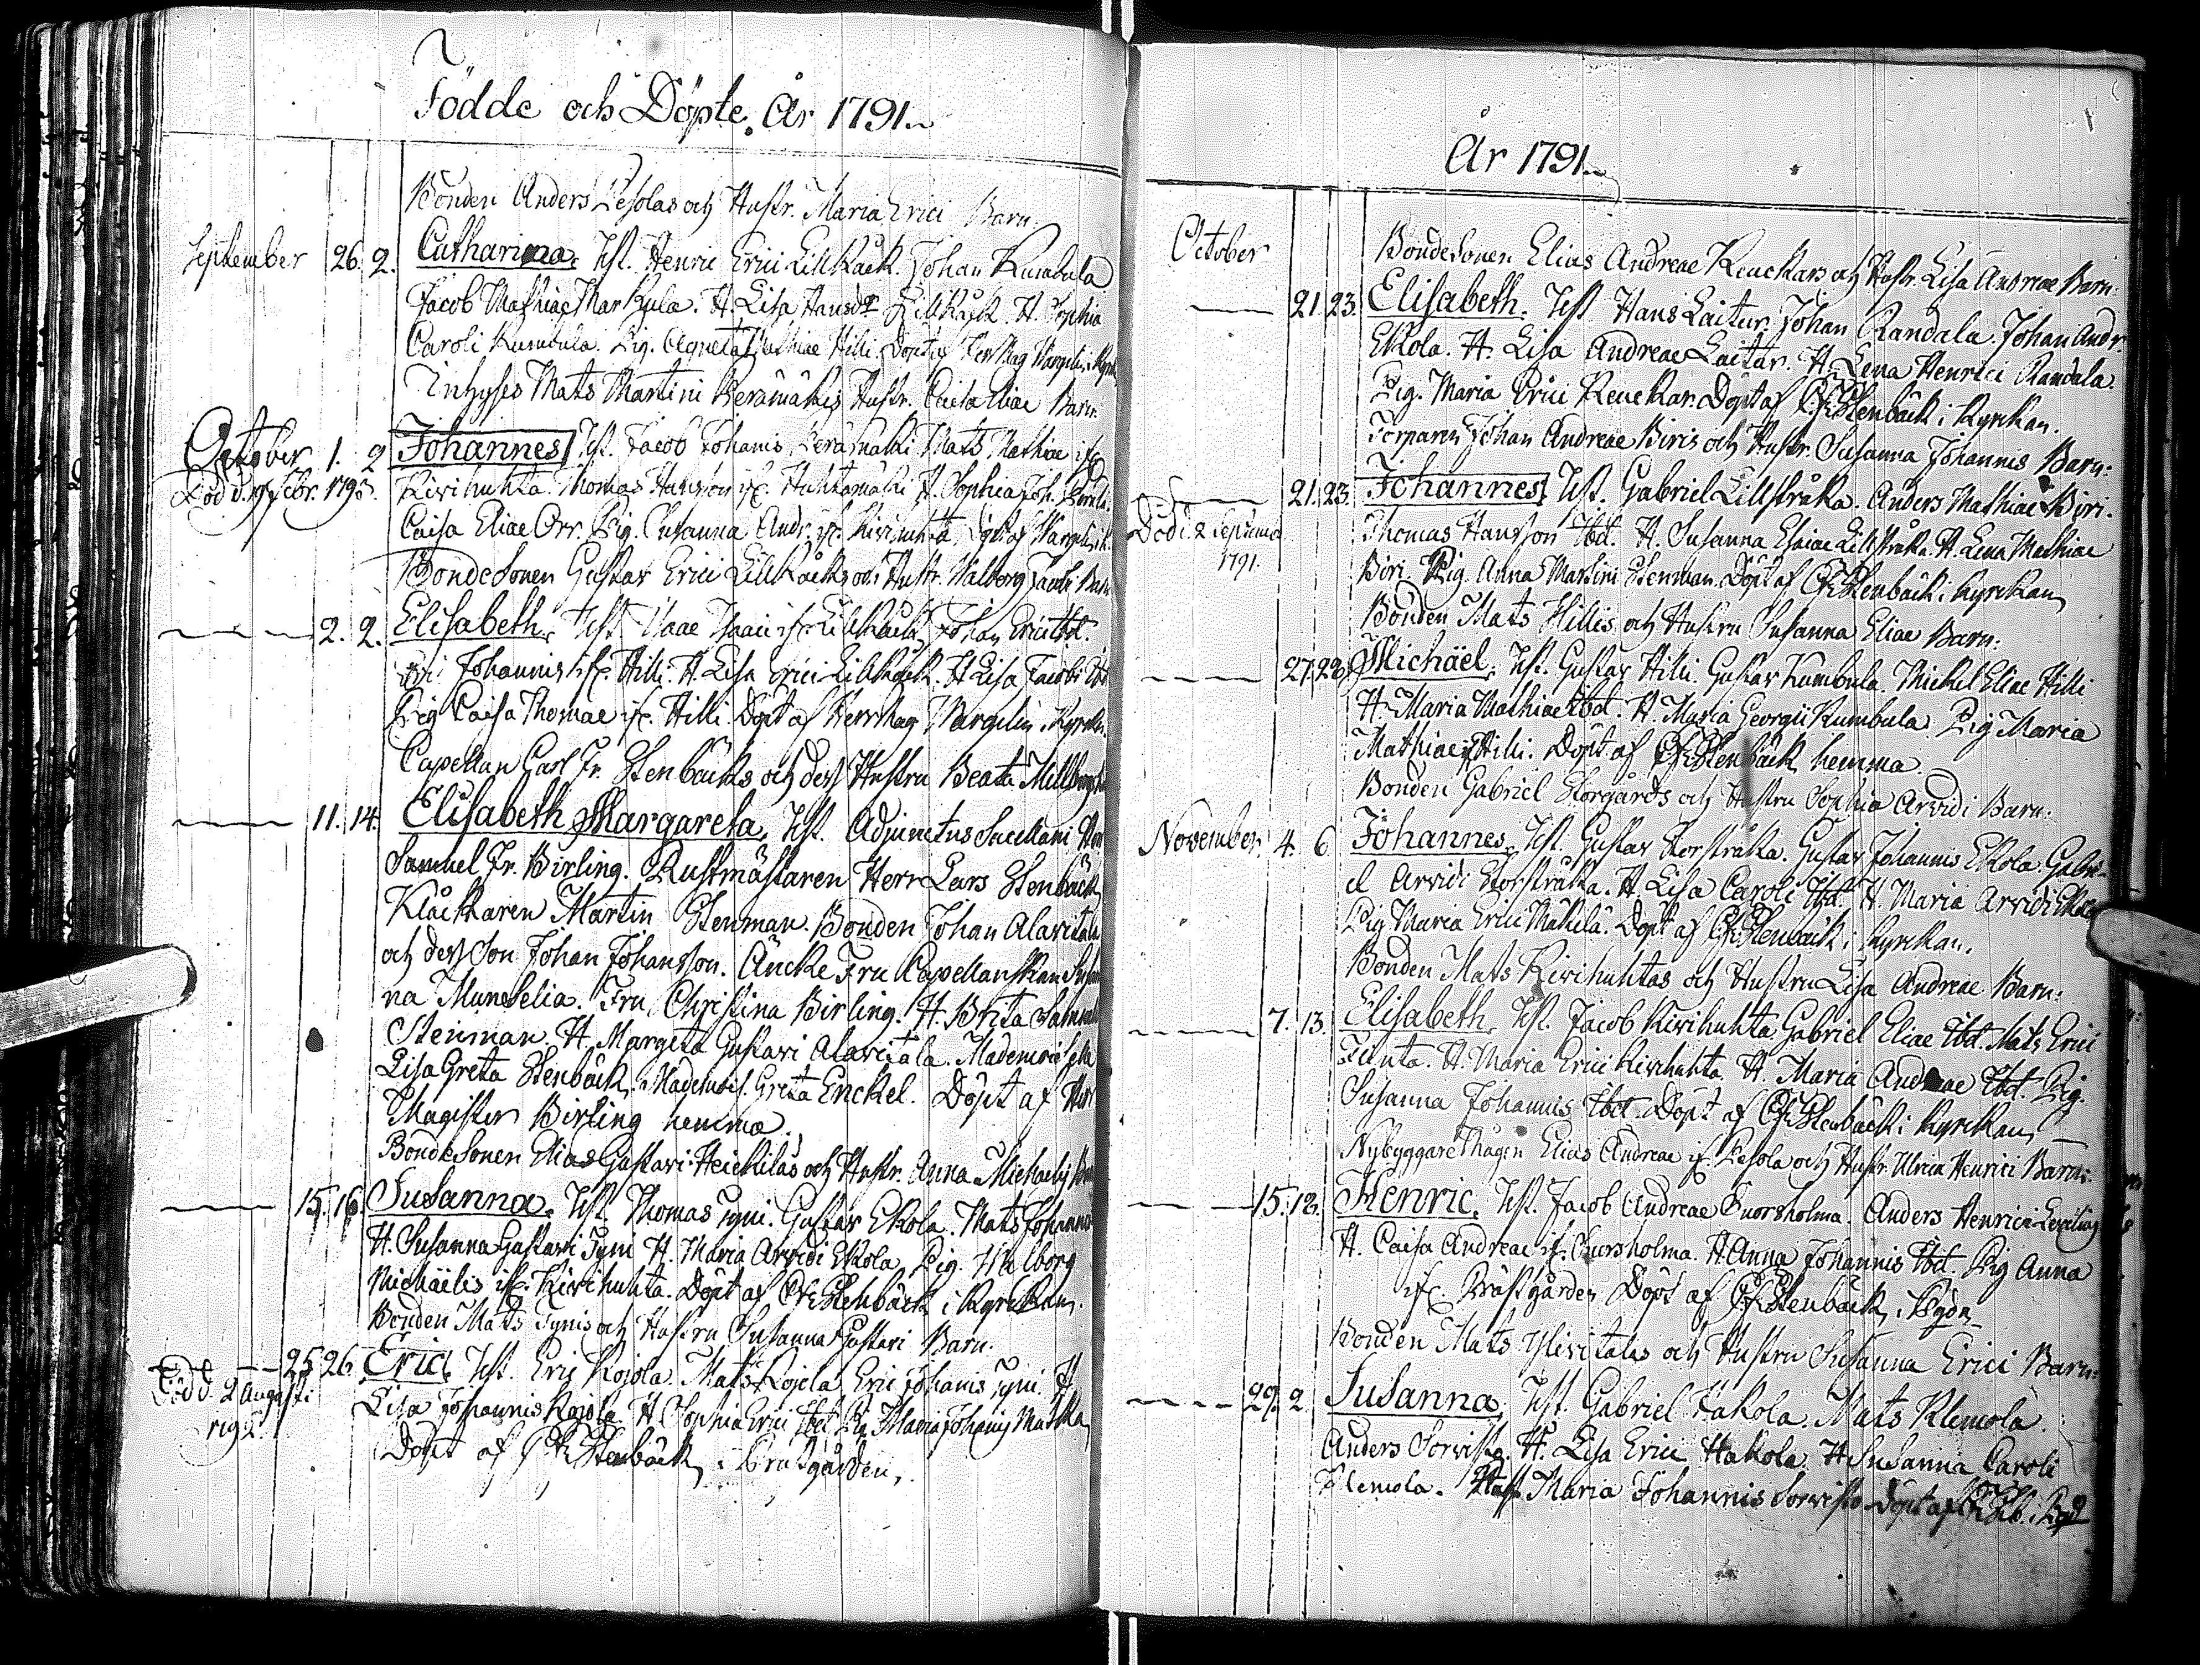 Födde och Döpte. År 1791.
Bonden Anders Lesolas och Hustr. Maria Erici Barn
September 26. 2. Catharina. Test. Henric Erici Lillkåck. Johan Kumbula
Jacob Mathiae Markula. H. Lisa Hansdr Lillkåck. H. Sophia
Caroli Kumbula. Pig. Agneta Mathiae Hilli Döpt af Herr Mag Wargelin i Kyrk
Inhyses Mats Martini Perämäkis Hustr. Caisa Eliae Barn
October 1. 2 Johannes Test. Jacob Johannis Perämäki Mats Mathiae if.
Död d. Febr. Kivihuhta. Thomas Hansson if. Huhtamäki H. Sophia Joh.
Caisa Eliae Orr. Pig. Susanna Andr. if. Kivihuhta. Döpt af Wargelin
BondeSonen Gustav Erici Lillkåcks och Hustr. Walborg Jacobi Barn
2. 2. Elisabeth. Test. Isaac Isaaci if. Lillkåck. Johan Erici Ibd.
Johannis if. Hilli. H. Lisa Erici Lillkåck. H Lisa Jacobi Ibd
Pig Caisa Thomae if. Hilli. Döpt af Herr Mag Wargelin i Kyrkan.
Capellan Carl Fr. Stenbäcks och dess Hustru Beata
11. 14. Elisabeth Margareta. Test. Adjunctus Sacellani Herr
Samuel Fr. Birling. Rustmästaren Herr Lars Stenbäck
Klåckaren Martin Stenman. Bonden Johan Alavitala
och dess Son Johan Johansson. Äncke Fru Capellanskan Susan
na Munselia. Fru Christina Birling. H. Brita
Stenman. H. Margeta Gustavi Alavitala. Mademoiselle
Lisa Greta Stenbäck. Mademois. Greta Enckel. Döpt af Herr
Magister Birling hemma.
BondeSonen Elias Gustavi Heickiläs och Hustr. Anna Michaelis Barn
15. 16. Susanna. Test. Thomas Tyni. Gustav Ekola. Mats Johannis
H. Susanna Gustavi Tyni H. Maria Arvidi Ekola. Pig. Walborg
Michäelis if. Kivihuhta. Döpt af CFStenbäck i Kyrckan.
Bonden Mats Tynis och Hustru Susanna Gustavi Barn.
25 26. Eric. Test. Eric Kojola. Mats Kojola Eric Johannis Tyni. H
Död d. 2 Augusti Lisa Johannis Kojola. H Sophia Erici Ibd. Pig. Maria Johannis
Döpt af CFStenbäck i Prästgården.
År 1791.
October BondeSonen Elias Andreae Kenckars och Hustr. Lisa Andreae Barn.
21. 23. Elisabeth. Test Hans Laitur. Johan Randala. Johan Andr.
Ekola. H. Lisa Andreae Laitar. H. Lena Henrici Randala.
Pig. Maria Erici Kenckar. Döpt af CFStenbäck i Kyrckan.
Torparen Johan Andreae Biris och Hustr. Susanna Johannis Barn.
21. 23. Johannes. Test. Gabriel Lillstråka. Anders Mathiae Biri.
Thomas Hansson Ibd. H. Susanna Esaiae Lillstråka. H. Lena Mathiae
1791. Biri. Pig. Anna Martini Stenman. Döpt af CFStenbäck i Kyrckan
Bonden Mats Hillis och Hustru Susanna Eliae Barn.
27. 28. Michäel. Test. Gustav Hilli. Gustav Kumbula. Michel Eliae Hilli
H. Maria Mathiae Ibd. H. Maria Georgii Kumbula. Pig Maria
Mathiae if. Hilli. Döpt af CFStenbäck hemma.
Bonden Gabriel Storgårds och Hustru Sophia Arvidi Barn.
November. 4. 6 Johannes. Test. Gustav Storstråka. Gustav Johannis Ekola. Gabri-
el Arvidi Storstråka. H. Lisa Caroli Ibd. H. Maria Arvidi Ekola
Pig Maria Erici Mäkilä. Döpt af CFStenbäck i Kyrckan.
Bonden Mats Kivihuhtas och Hustru Lisa Andreae Barn.
7. 13. Elisabeth. Test. Jacob Kivihuhta. Gabriel Eliae Ibd. Mats Erici
H. Maria Erici Kivihuhta. H. Maria Andreae Ibd. Pig.
Susanna Johannis Ibd. Döpt af CFStenbäck i Kyrckan
Nybyggare Mågen Elias Andreae if. Lesola och Hustr. Ulrica Henrici Barn.
15. 18. Henric. Test. Jacob Andreae Orrholma. Anders Henrici
H. Caisa Andreae if. H. Anna Johannis Ibd. Pig Anna
if. Prästgården. Döpt af CFStenbäck i Byen
Bonden Mats Ylivitalas och Hustru Susanna Erici Barn.
29. 2. Susanna. Test. Gabriel Hakola. Mats Klemola.
Anders Sorvisto. H. Lisa Erici Hakola. H Susanna Caroli
Klemola. Hust. Maria Johannis Sorvisto Döpt af